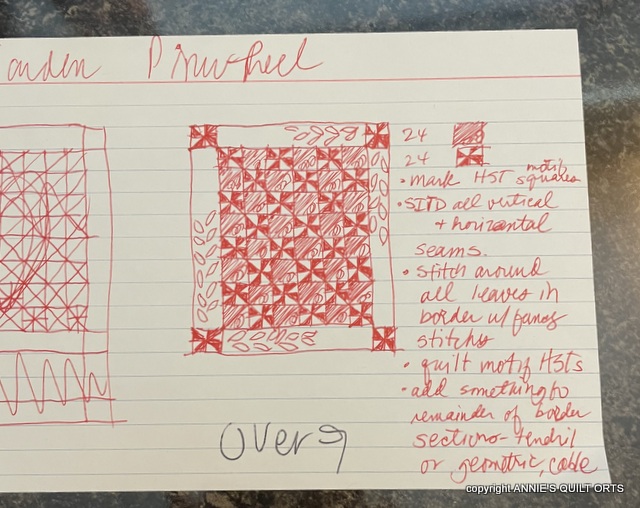 arden Pinwheel
24
24
• mark HST motif squares
• SITD all vertical
+ horizontal
seams.
• stitch around
all leaves in
border w/fancy
stitches
• quilt motif HSTs
• add something to
remainder of border
sections - tendril
or geometric, cable
Over
copyright ANNIE'S QUILT ORTS